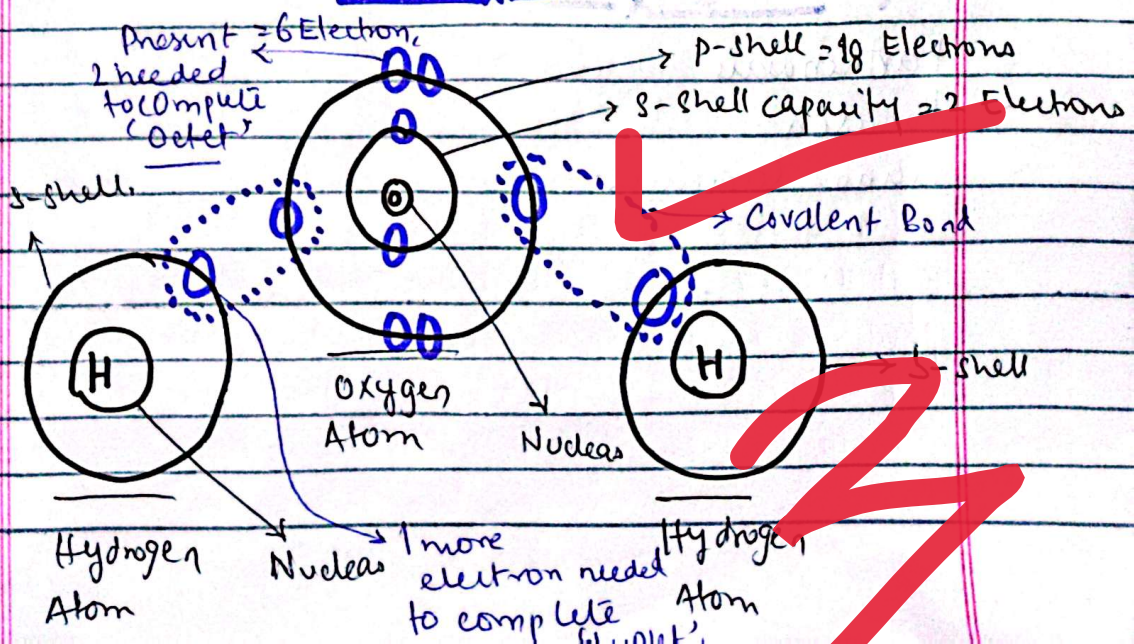 Present = 6 Electron,
2 needed
to compute
'Octet'
p-shell = 18 Electrons
s-shell capacity = 2 Electrons
s-shell.
Covalent Bond
H
O
H
s-shell
Oxygen
Atom
Nucleas
Hydrogen
Atom
Nucleas
1 more
electron needed
to complete
Hydrogen
Atom